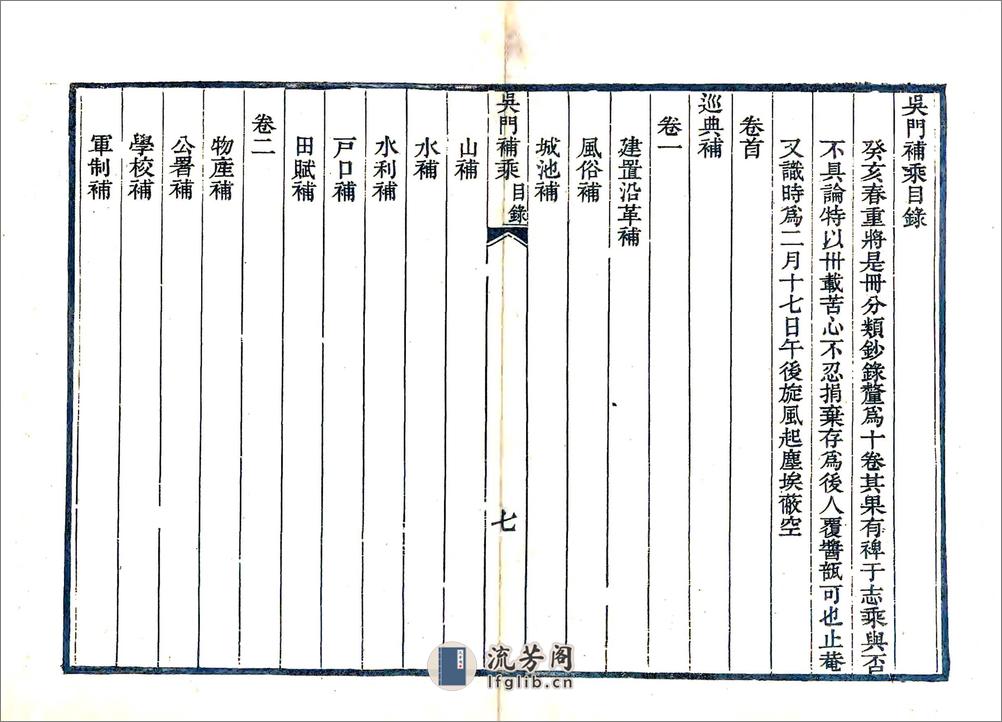 吳門補乘目錄
癸亥春重將是冊分類鈔錄釐爲十卷其果有裨于志乘與否
不具論特以卅載苦心不忍捐棄存爲後人覆醬瓿可也止菴
又識時爲二月十七日午後旋風起塵埃蔽空
卷首
巡典補
卷一
建置沿革補
風俗補
城池補
吳門補乘 目錄 七
山補
水補
水利補
戸口補
田賦補
卷二
物產補
公署補
學校補
軍制補
流芳阁
lfglib.cn